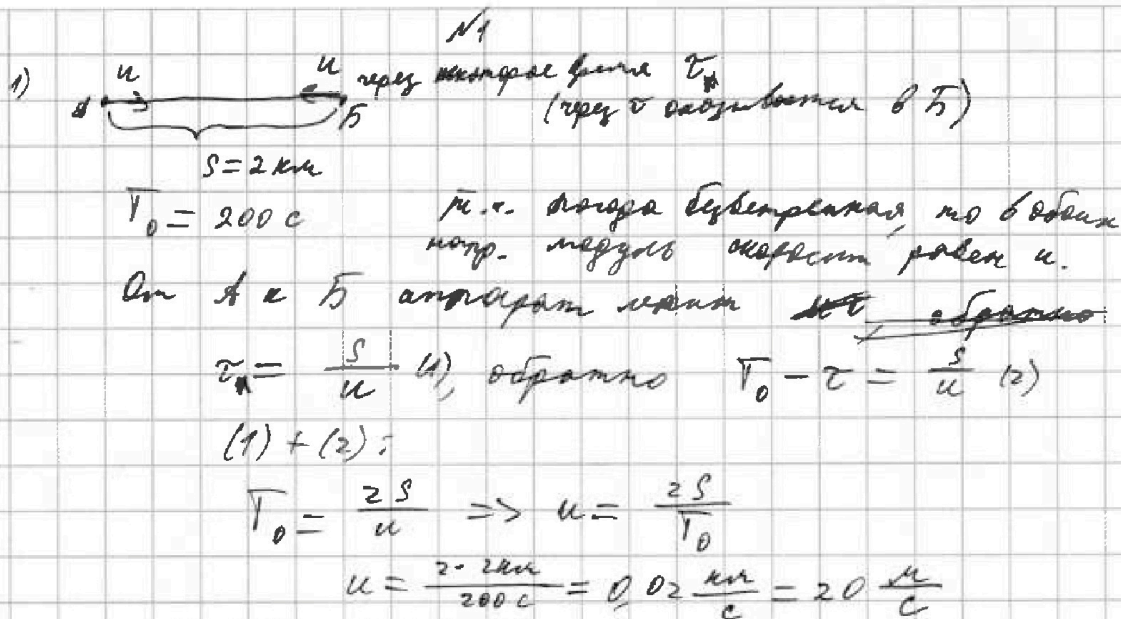 №1
1) u u через некоторое время τ
А Б (через τ оказывается в Б)
S = 2 км
T₀ = 200 с т.к. погода безветренная, то в обоих
напр. модуль скорости равен u.
От А к Б аппарат летит обратно
τ = S/u (1), обратно T₀ - τ = S/u (2)
(1) + (2):
T₀ = 2S/u => u = 2S/T₀
u = 2·2км/200с = 0,02 км/с = 20 м/с